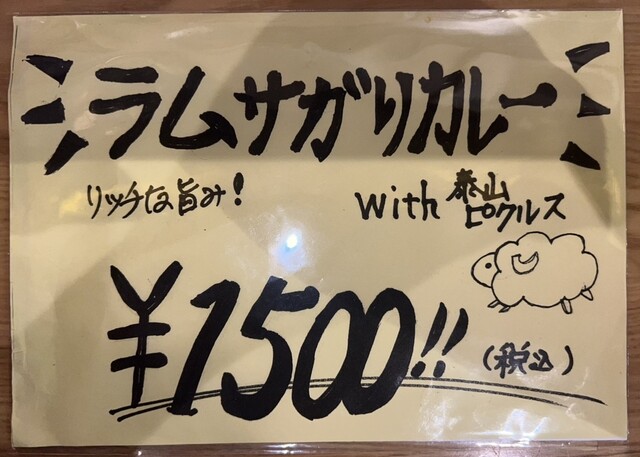 ラムサガリカレー
リッチな旨み!
with 泰山
ピクルス
¥1500!!
(税込)